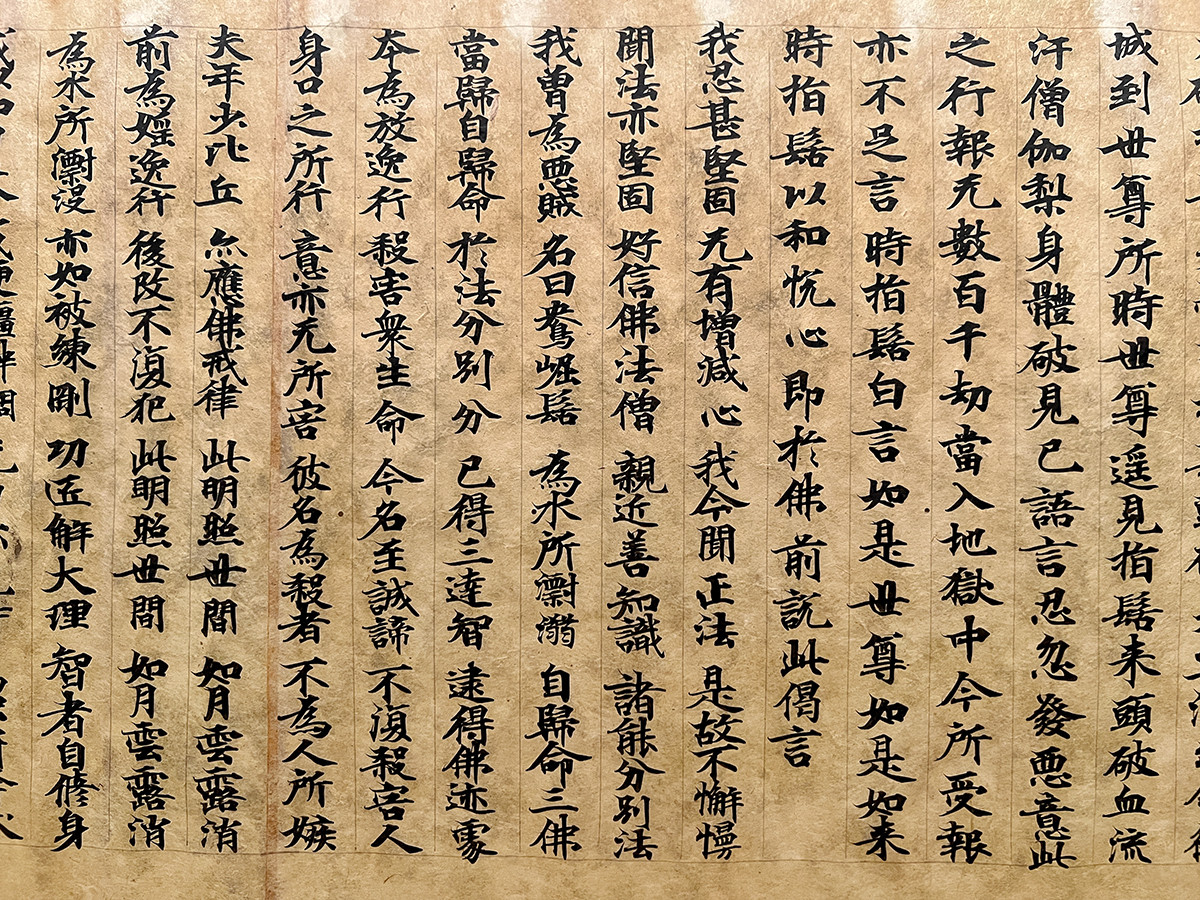 城到世尊所時世尊遥見指髻来頭破血流
汗僧伽梨身體破見已語言忍忽發惡意此
之行報无數百千劫當入地獄中今所受報
亦不足言時指髻白言如是世尊如是如来
時指髻以和恱心即於佛前說此偈言
我忍甚堅固 无有增減心 我今聞正法 是故不懈慢
聞法亦堅固 好信佛法僧 親近善知識 諸能分別法
我曽為惡賊 名曰鴦崛髻 為水所漂溺 自歸命三佛
當歸自歸命 於法分別分 已得三達智 逮得佛迹
本為放逸行 殺害衆生命 今名至誠諦 不復殺害人
身口之所行 意亦无所害 彼名為殺者 不為人所嫉
夫年少比丘 亦應佛戒律 此明照世間 如月雲露消
前為婬逸行 後改不復犯 此明照世間 如月雲露消
為水所漂没 亦如被練剛 功匠解大理 智者自修身